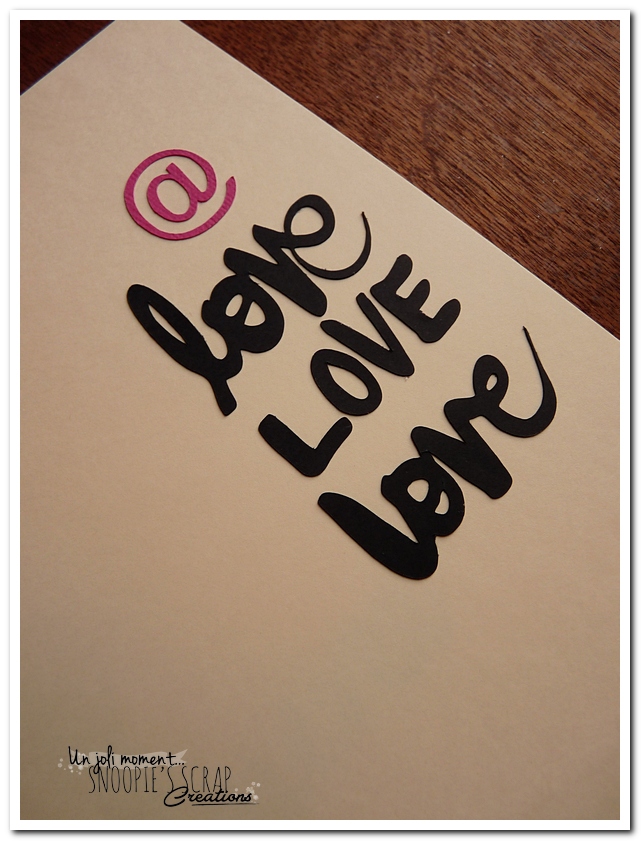 @
love
LOVE
love
Un joli moment...
SNOOPIE'S SCRAP
Creations